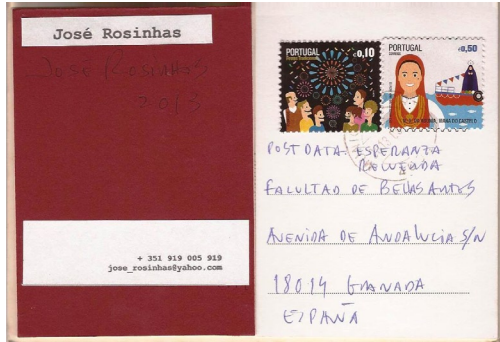 José Rosinhas
José Rosinhas
+ 351 919 005 919
jose_rosinhas@yahoo.com
PORTUGAL
€0,10
PORTUGAL
€0,50
POSTDATA. ESPERANZA
RECUERDA
FACULTAD DE BELLAS ARTES
AVENIDA DE ANDALUCIA S/N
18014 GRANADA
ESPAÑA